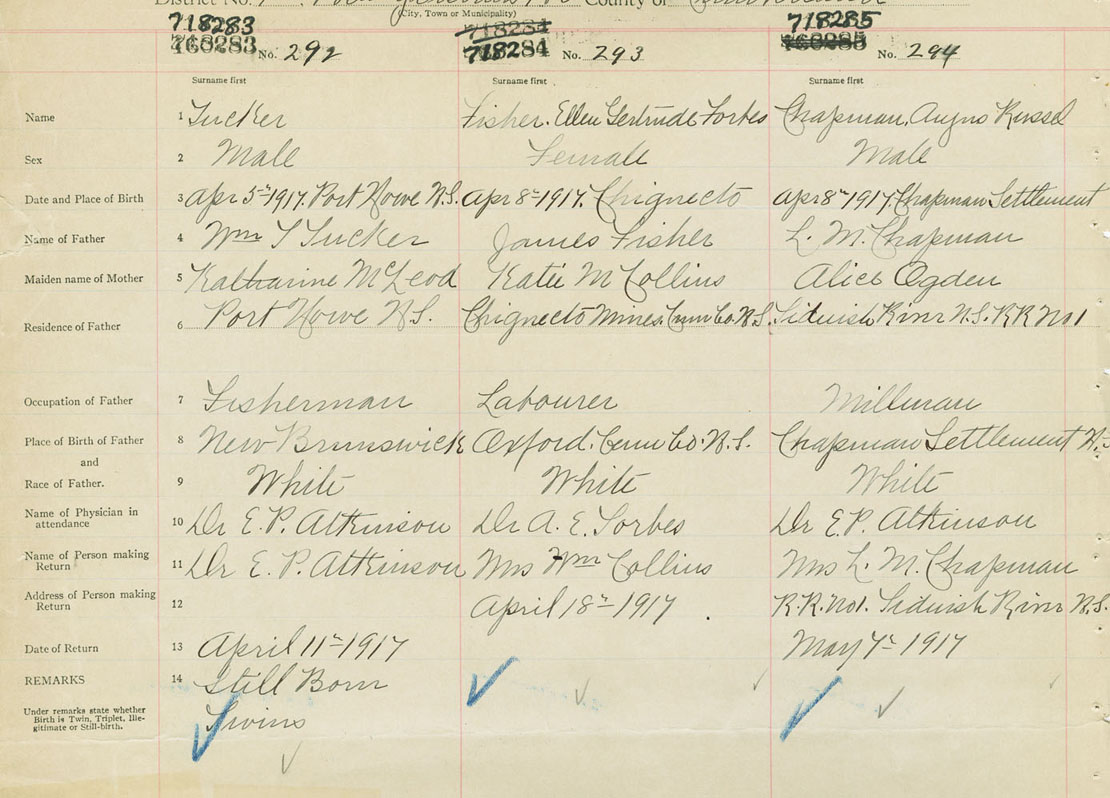 District No. County of
(City, Town or Municipality)
718283 718284 718285
768283 No. 292 718284 No. 293 768285 No. 294
Surname first Surname first Surname first
Name 1 Tucker Fisher. Ellen Gertrude Forbes Chapman, Angus Russel
Sex 2 Male Female Male
Date and Place of Birth 3 Apr 5th 1917. Port Howe N.S. Apr 8th 1917. Chignecto Apr 8th 1917 Chapman Settlement
Name of Father 4 Wm T Tucker James Fisher L. M. Chapman
Maiden name of Mother 5 Katharine McLeod Katie M Collins Alice Ogden
Residence of Father 6 Port Howe N.S. Chignecto Mines. Cum Co. N.S. Tidnish River N.S. RR No 1
Occupation of Father 7 Fisherman Labourer Millman
Place of Birth of Father 8 New Brunswick Oxford. Cum Co. N.S. Chapman Settlement N.S
and
Race of Father. 9 White White White
Name of Physician in
attendance 10 Dr E. P. Atkinson Dr A. E. Forbes Dr E. P. Atkinson
Name of Person making
Return 11 Dr E. P. Atkinson Mrs Wm Collins Mrs L. M. Chapman
Address of Person making
Return 12 April 18th 1917 R.R. No 1. Tidnish River N.S.
Date of Return 13 April 11th 1917 May 7th 1917
REMARKS 14 Still Born
Under remarks state whether
Birth is Twin, Triplet, Ille-
gitimate or Still-birth. Twins